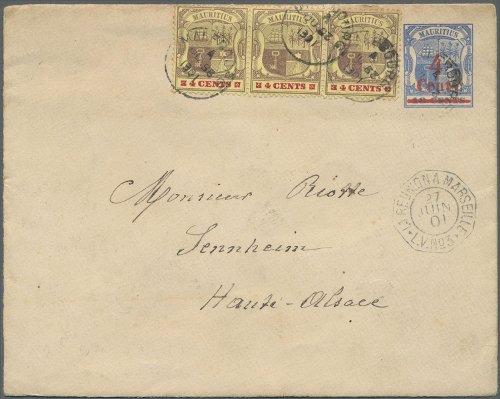 MAURITIUS MAURITIUS MAURITIUS
4 CENTS 4 CENTS 4 CENTS
4
Cents
LA REUNION A MARSEILLE
27
JUIN
01
L.V. NO3
Monsieur Riotte
Sennheim
Haute-Alsace